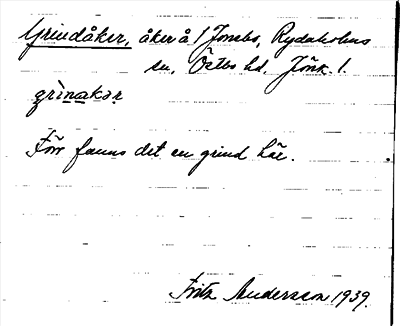 Grindåker, åker å 1 Jonsbo, Rydaholms
sn. Östbo hd. Jönk. l.
grìnakər
Förr fanns det en grind här.
Fritz Andersson 1939.